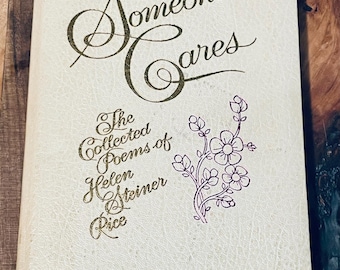 Someone
Cares
The
Collected
Poems of
Helen
Steiner
Rice